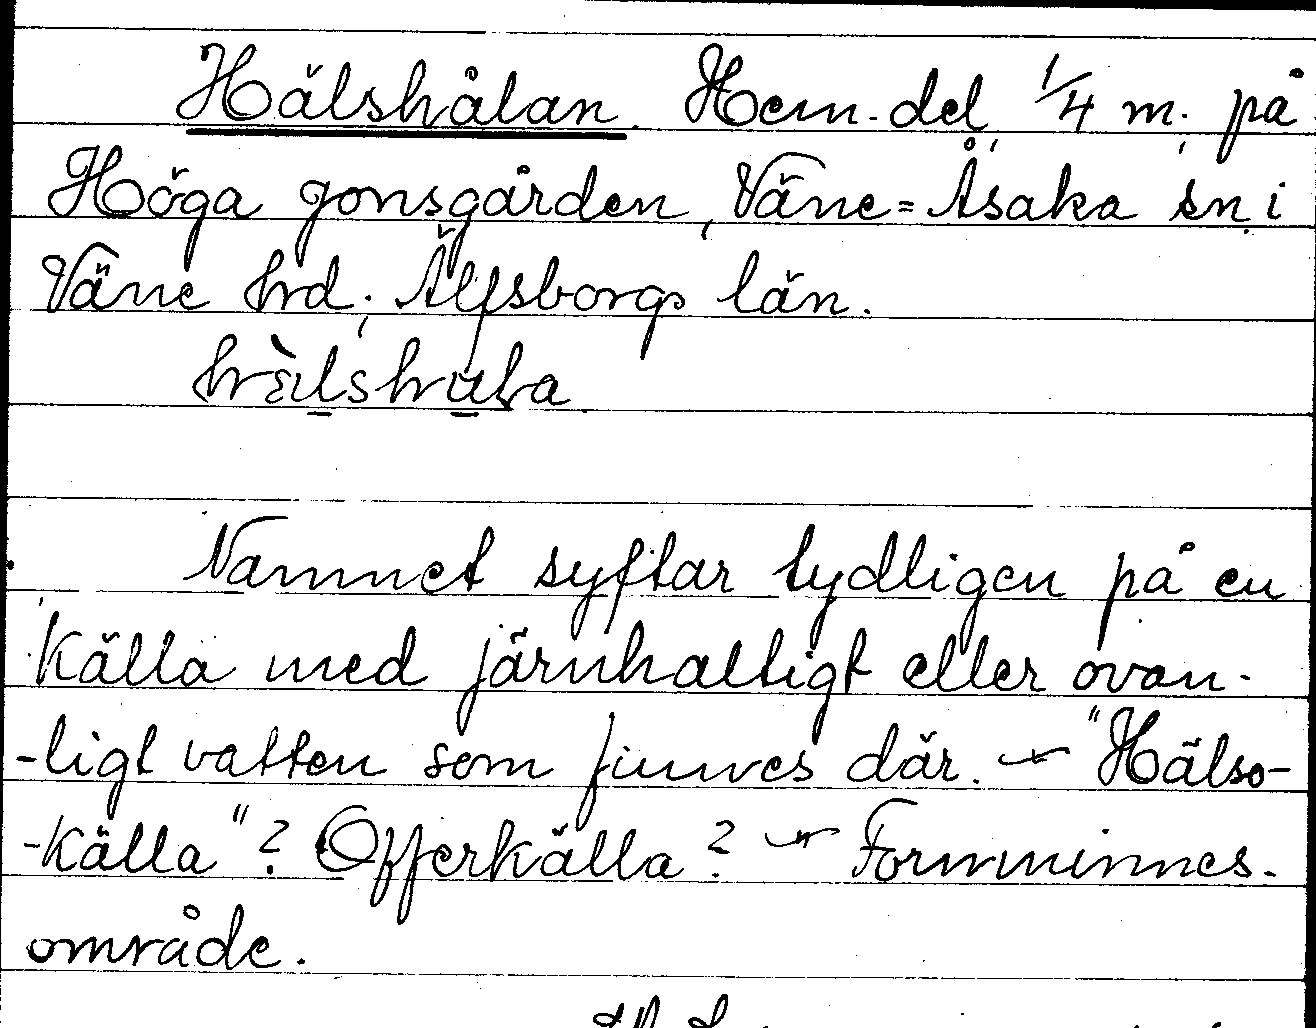 Hälshålan. Hem.del, 1/4 m. på
Höga Jonsgården, Väne=Åsaka sn. i
Väne hrd; Älfsborgs län.
Namnet syftar tydligen på en
källa med järnhaltigt eller ovan-
-ligt vatten som finnes där. – "Hälso-
-källa"? Offerkälla? – Fornminnes-
område.